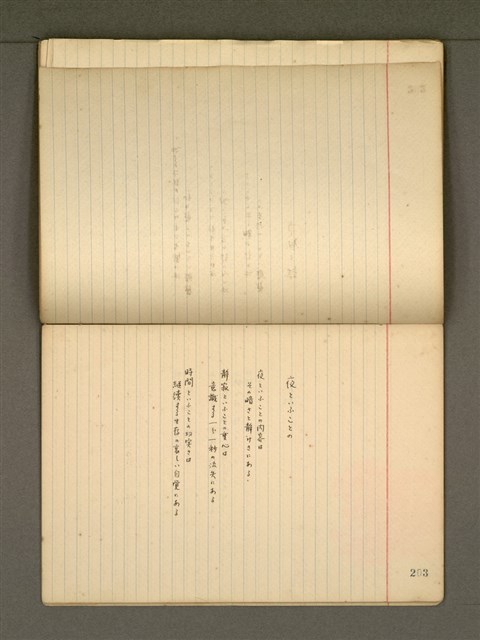 夜といふことの
夜といふことの内容は
その暗さと静けさにある
静寂といふことの重心は
意識する一つ一種の法失にある
時間といふことの切実さは
継続する生存の苦しい自覚にある
203